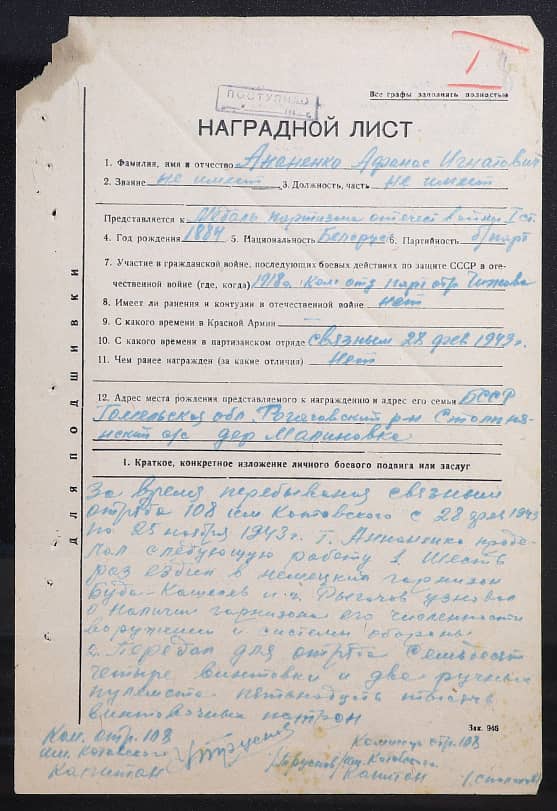 ПОСТУПИЛО
1
Все графы заполнять полностью
НАГРАДНОЙ ЛИСТ
1. Фамилия, имя и отчество Ананенко Афанас Игнатович
2. Звание не имеет 3. Должность, часть не имеет
Представляется к Медаль партизана отечеств войны I ст.
4. Год рождения 1884 5. Национальность Белорус 6. Партийность б/парт
7. Участие в гражданской войне, последующих боевых действиях по защите СССР в оте-
чественной войне (где, когда) 1918г. Ком. отд парт отр. Чижова
8. Имеет ли ранения и контузии в отечественной войне нет
9. С какого времени в Красной Армии —
10. С какого времени в партизанском отряде связным 28 фев 1943г.
11. Чем ранее награжден (за какие отличия) Нет
12. Адрес места рождения представляемого к награждению и адрес его семьи БССР
Гомельская обл. Рогачовский р-н Столпня-
нский с/с дер Малиновка
ДЛЯ ПОДШИВКИ
1. Краткое, конкретное изложение личного боевого подвига или заслуг
За время перебывания связным
отрята 108 им Котовского с 28 фев 1943
по 25 ноября 1943г. т. Аннаненко проде-
лал следующую работу 1. Шесть
раз ездил в немецкий гарнизон
Буда-Кошелев и г. Рогачов узновал
о наличии гарнизона его численности
воружении и системы обороны
2. Передал для отрята семьдесят
четыре винтовки и два ручных
пулемета пятьнадцать тысяч
винтовочных патрон
Зак. 946
Ком. отр. 108
им. Котовского
Капитан /Трусов/
Комисар отр. 108
им. Котовского
Капитан